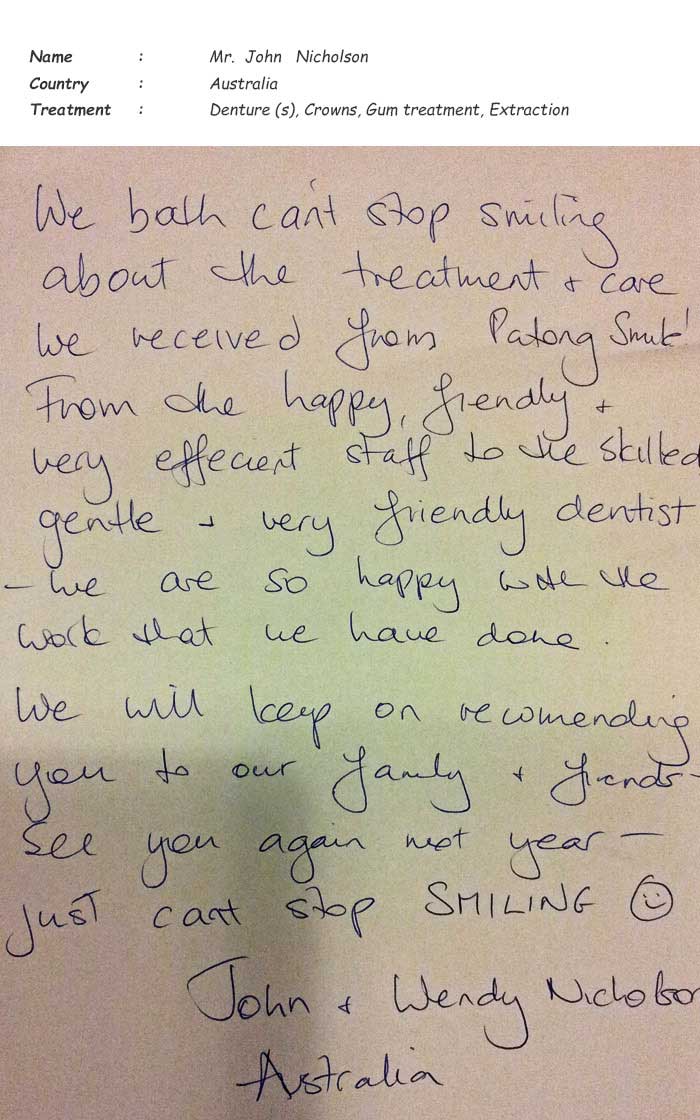 Name : Mr. John Nicholson
Country : Australia
Treatment : Denture (s), Crowns, Gum treatment, Extraction
We both can't stop smiling
about the treatment + care
we received from Patong Smile!
From the happy, friendly +
very effecient staff to the skilled
gentle + very friendly dentist
- we are so happy with the
work that we have done.
We will keep on recomending
you to our family + friends -
See you again next year -
just cant stop SMILING ☺
John + Wendy Nicholson
Australia